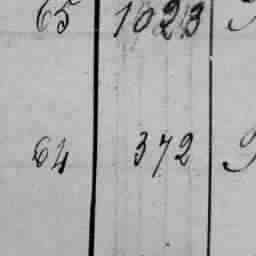 65 1023
64 372